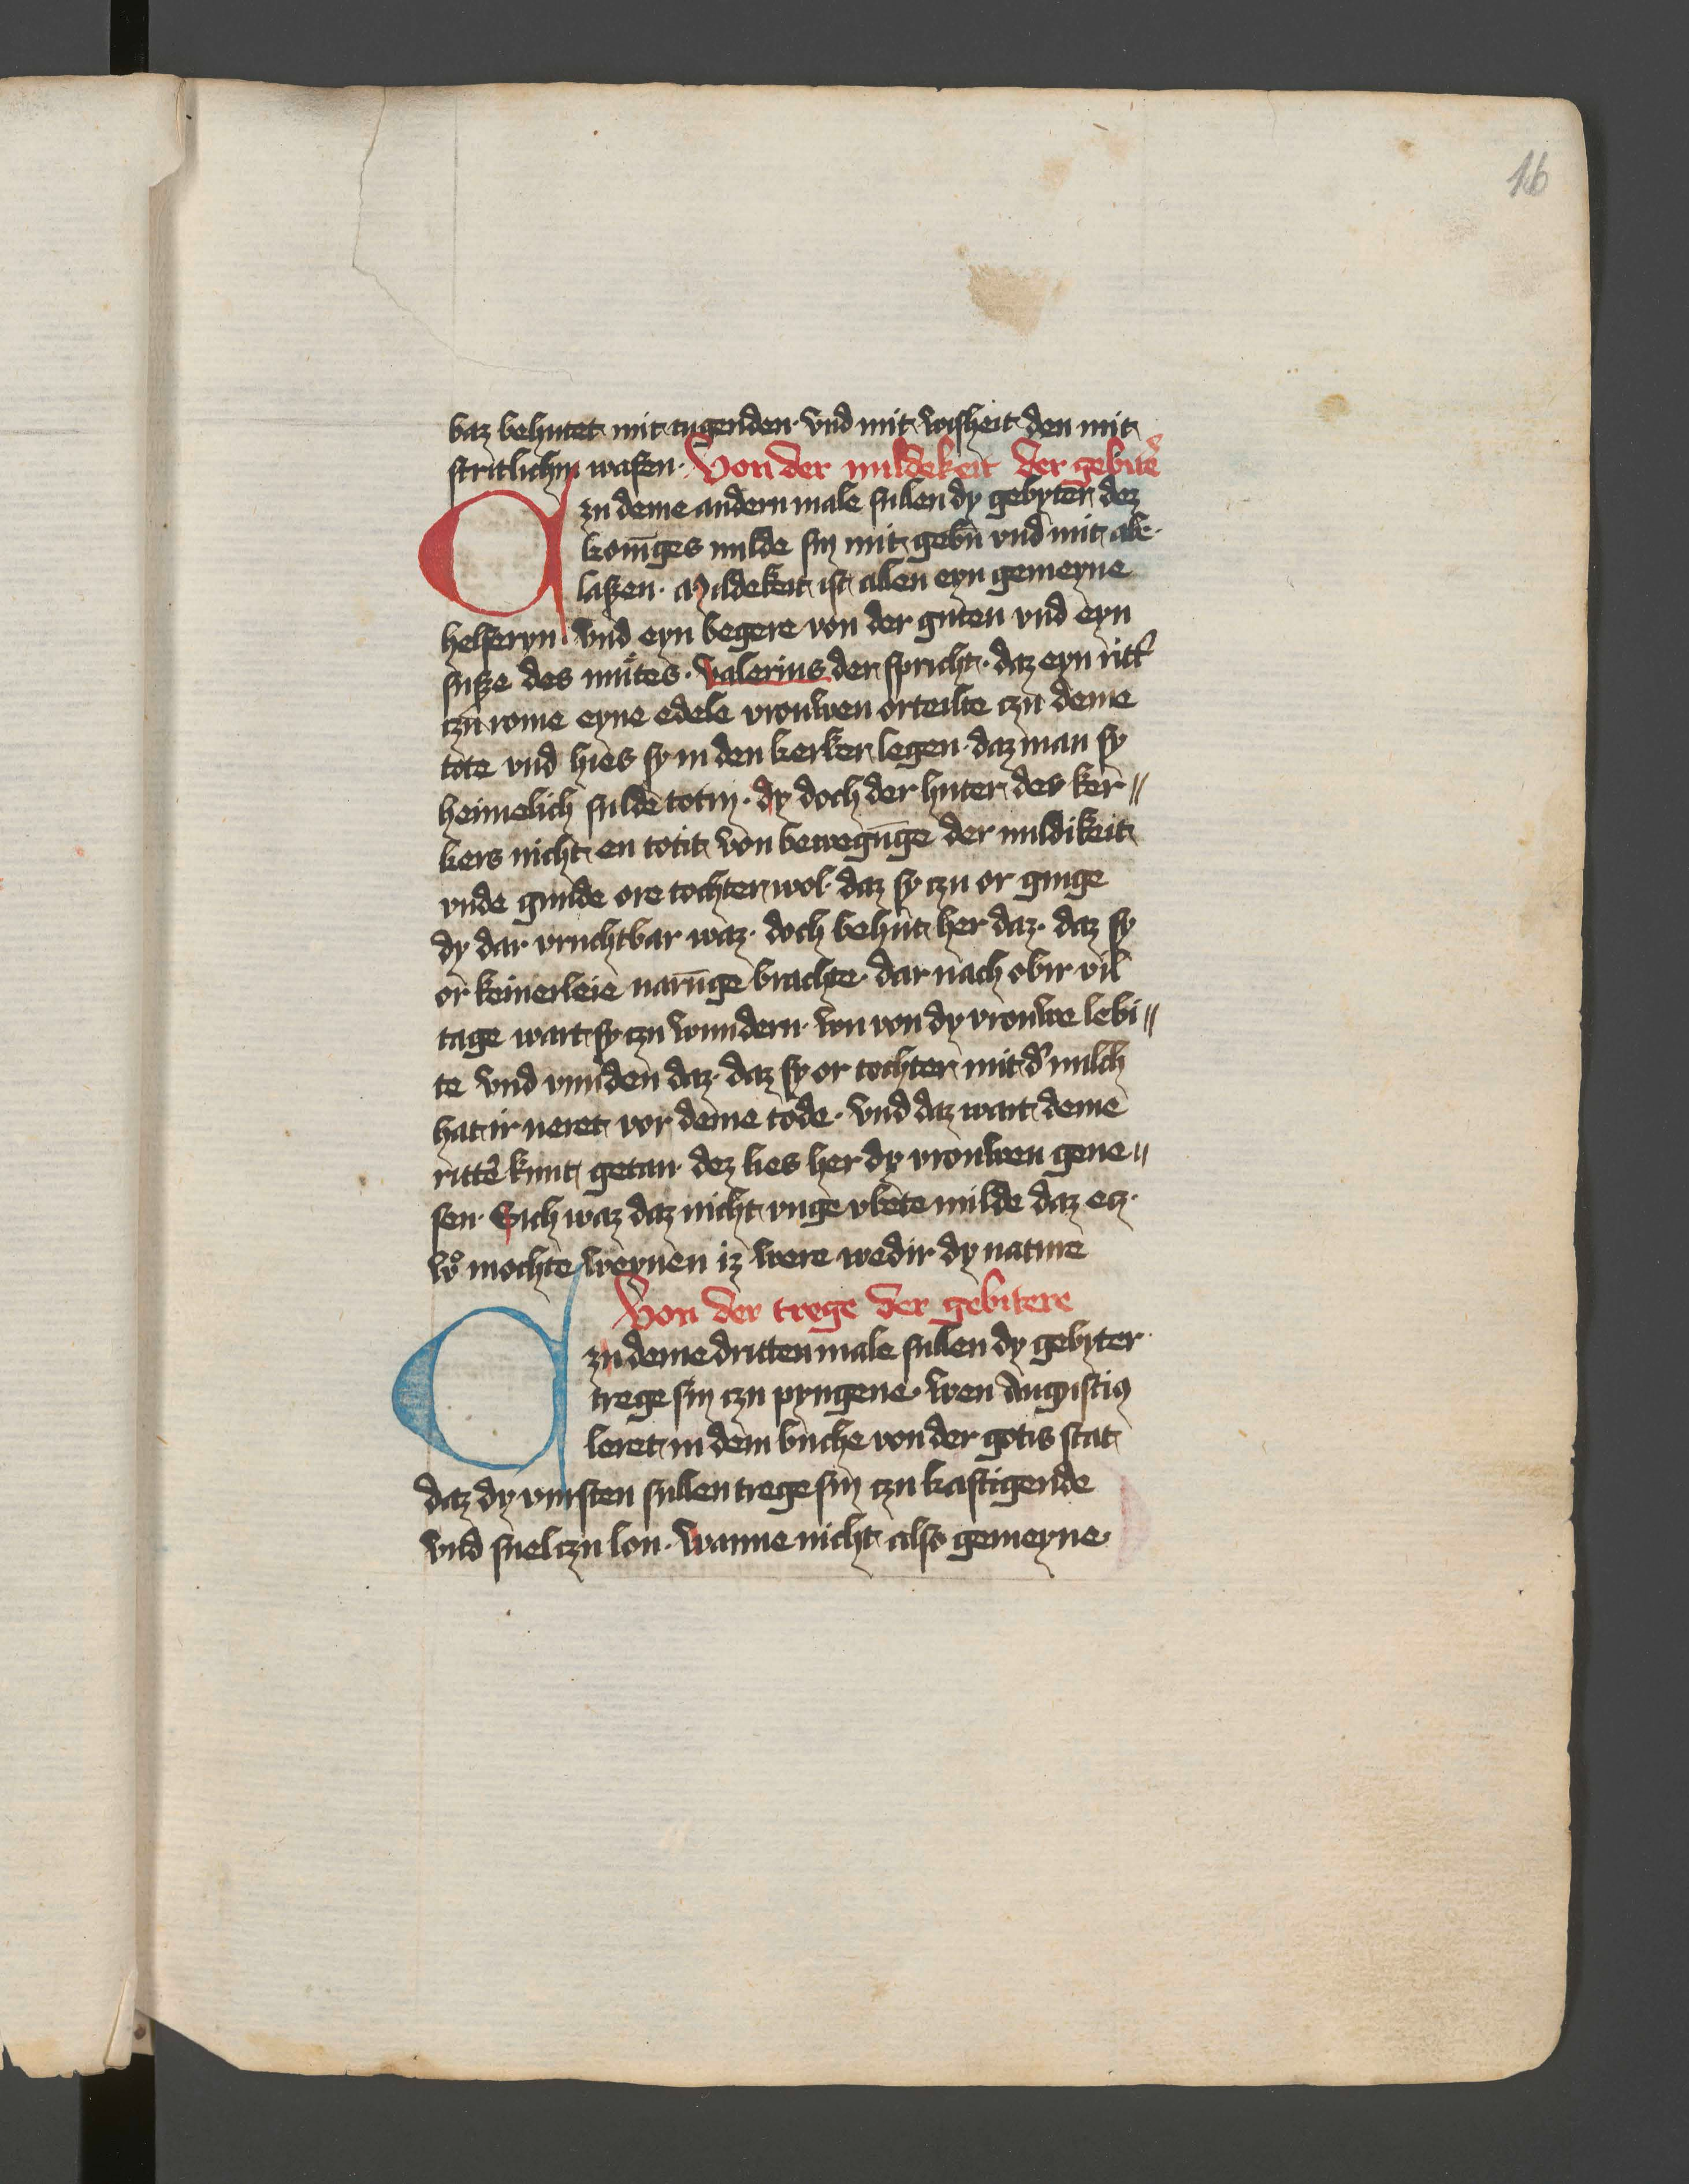 16
baz behutet mit tugenden · vnd mit wisheit den mit
stritlichin wafen · Von der mildekeit der gebitẽ
Czu deme andern male sullen dy gebyter dez
kon̄iges milde sin mit gebn̄ vnd mit abe·
laßen · Mildekeit ist allen eyn gemeyne
helferyn · vnd eyn begere von der guten vnd eyn
suße des mutes · Valerius der spricht · daz eyn ritt̛
czu rome eyne edele vrouwen orteilte czu deme
tote vnd hies sy in den kerker legen · daz man sy
heimelich sulde totin · dy doch der huter des ker〃
kers nicht en totit von bewegūge der mildikeit
vnde gunde ore tochter wol · daz sy czu or ginge
dy dar vruchtbar waz · doch behut her daz · daz sy
or keinerleie narūge brachte · dar nach obir vil
tage wart sy czu wundern · wu von dy vrouwe lebi〃
te vnd vunden daz · daz sy or tochter mit d̛ milch
hat ir neret vor deme tode · vnd daz wart deme
rittẽ kunt getan · dez lies her dy vrouwen gene〃
sen · Sich waz daz nicht vnge vbete milde daz ecz·
wͦ mochte weynen iz were wedir dy nature
Von der trege der gebitere
Czu deme dritten male sullen dy gebyter·
trege sin czu pyngene · wen Augustiꝰ
leret in dem buche von der gotis stat
daz dy vursten sullen trege sin czu kastigende
vnd snel czu lon · wanne nicht also gemeyne·